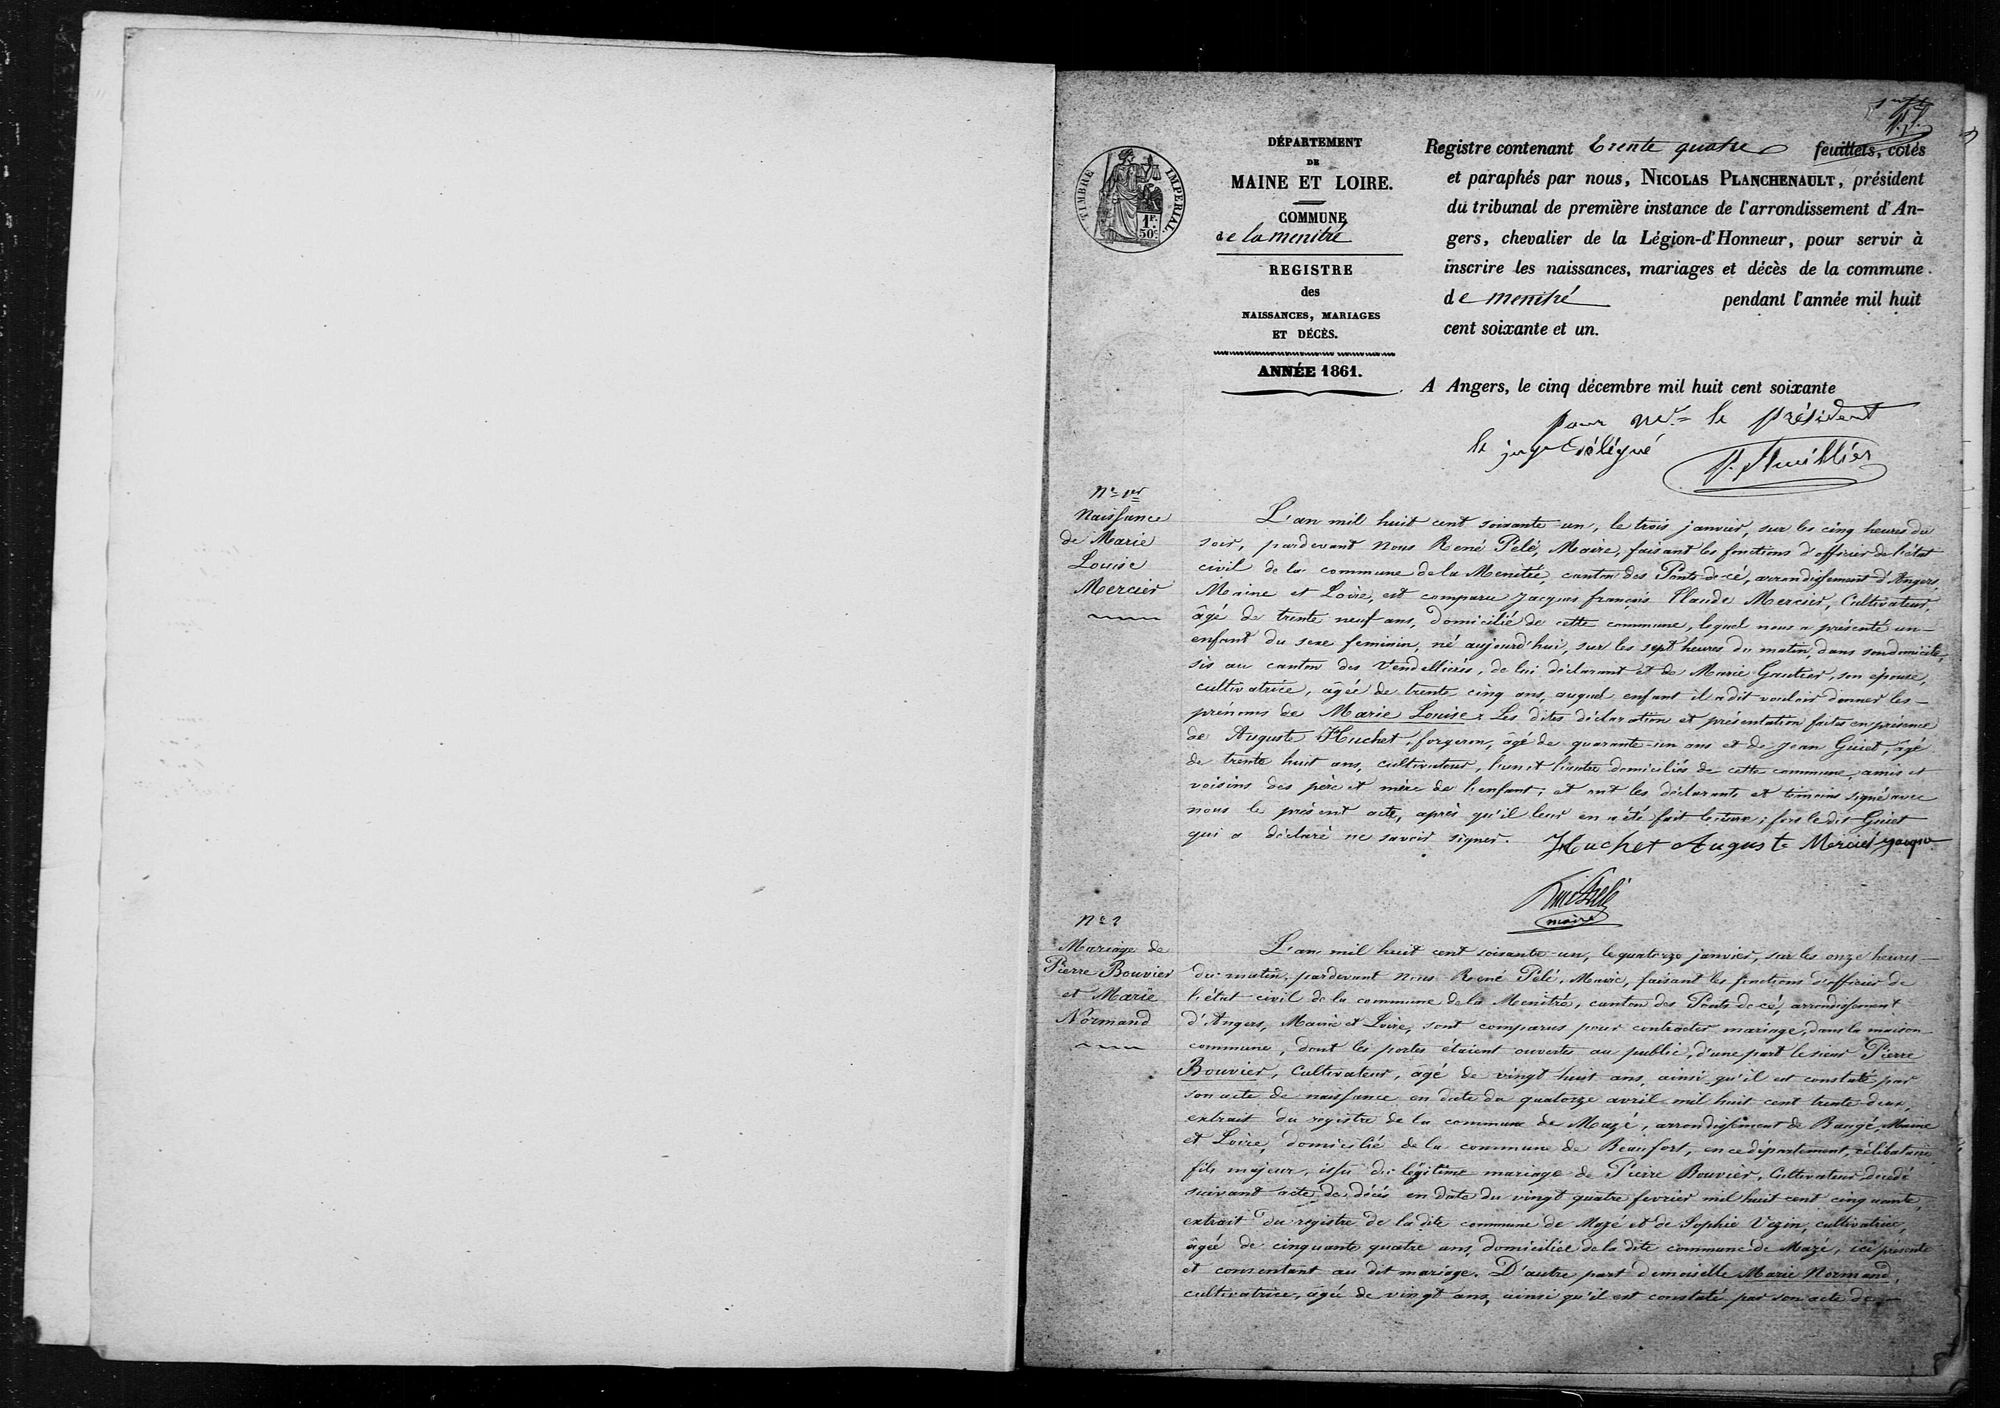 TIMBRE IMPERIAL.
1F. 50c
DÉPARTEMENT
DE
MAINE ET LOIRE.
COMMUNE
de la menitré
REGISTRE
des
NAISSANCES, MARIAGES
ET DÉCÈS.
ANNÉE 1861.
Registre contenant trente quatre feuillets, cotés
et paraphés par nous, NICOLAS PLANCHENAULT, président
du tribunal de première instance de l'arrondissement d'An-
gers, chevalier de la Légion-d'Honneur, pour servir à
inscrire les naissances, mariages et décès de la commune
de menitré pendant l'année mil huit
cent soixante et un.
A Angers, le cinq décembre mil huit cent soixante
pour Mr. le président
le juge Délégué
No. 1er
Naissance
de Marie
Louise
Mercier
L'an mil huit cent soixante un, le trois janvier, sur les cinq heures du
soir, pardevant Nous René Pelé, Maire, faisant les fonctions d'officier de l'état
civil de la commune de la Menitré, canton des Ponts de cé, arrondissement d'Angers,
Maine et Loire, est comparu Jacques françois Claude Mercier, Cultivateur,
âgé de trente neuf ans, domicilié de cette commune, lequel nous a présenté un
enfant du sexe feminin, né aujourd'hui, sur les sept heures du matin, dans son domicile,
sis au canton des Vendellières, de lui déclarant et de Marie Gautier, son épouse,
cultivatrice, âgée de trente cinq ans, auquel enfant il a dit vouloir donner les
prénoms de Marie Louise. Les dites déclaration et présentation faites en présence
de Auguste Huchet, forgeron, âgé de quarante-un ans et de Jean Guiet, âgé
de trente huit ans, cultivateur, l'un et l'autre domiciliés de cette commune, amis et
voisins des père et mère de l'enfant; et ont les déclarants et temoins signé avec
nous le présent acte, après qu'il leur en a été fait lecture; fors le dit Guiet
qui a déclaré ne savoir signer. Huchet Auguste Mercier jacque
maire
No. 2
Mariage de
Pierre Bouvier
et Marie
Normand
L'an mil huit cent soixante un, le quatorze janvier, sur les onze heures
du matin, pardevant Nous René Pelé, Maire, faisant les fonctions d'officier de
l'état civil de la commune de la Menitré, canton des Ponts de cé, arrondissement
d'Angers, Maine et Loire, sont comparus pour contracter mariage, dans la maison
commune, dont les portes étaient ouvertes au public, d'une part le sieur Pierre
Bouvier, Cultivateur, âgé de vingt huit ans, ainsi qu'il est constaté par
son acte de naissance en date du quatorze avril mil huit cent trente deux,
extrait du registre de la commune de Mazé, arrondissement de Baugé, Maine
et Loire, domicilié de la commune de Beaufort, en ce département, célibataire
fils majeur, issu du légitime mariage de Pierre Bouvier, Cultivateur, décédé
suivant acte de décès en date du vingt quatre fevrier mil huit cent cinquante,
extrait du registre de la dite commune de Mazé et de Sophie Vezin, cultivatrice,
âgée de cinquante quatre ans, domiciliée de la dite commune de Mazé, ici présente
et consentant au dit mariage. D'autre part demoiselle Marie Normand,
cultivatrice, âgée de vingt ans, ainsi qu'il est constaté par son acte de